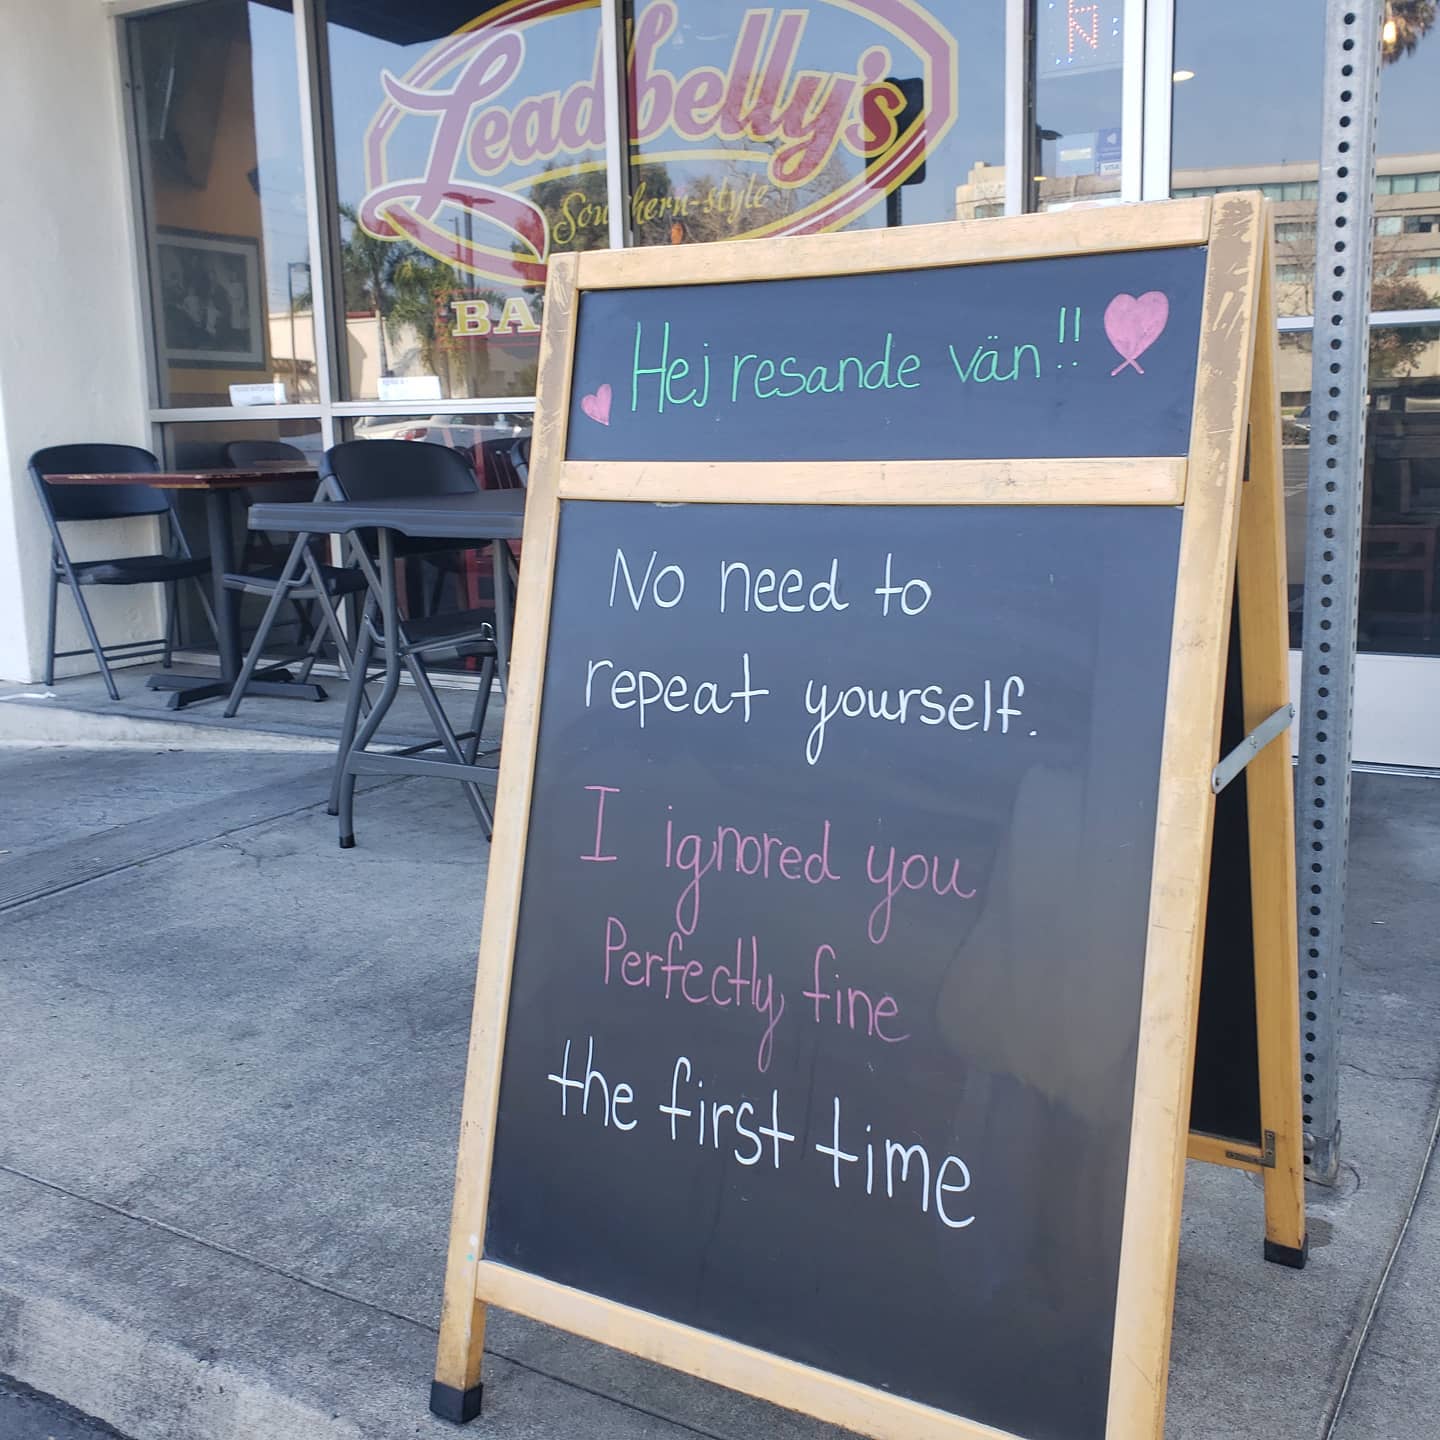 Leadbelly's
Southern-style
BA
VISA
Hej resande vän!!
No need to
repeat yourself.
I ignored you
Perfectly fine
the first time